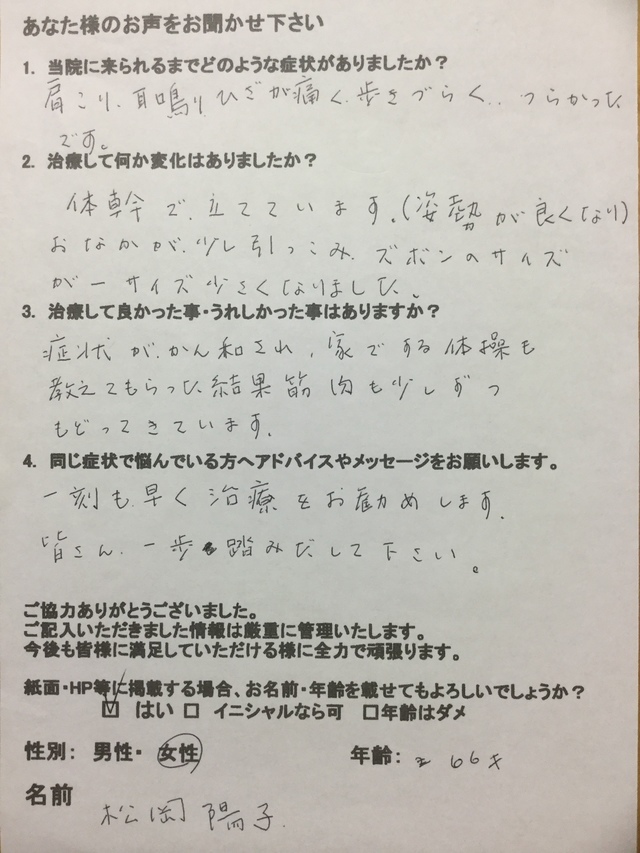 あなた様のお声をお聞かせ下さい
1. 当院に来られるまでどのような症状がありましたか？
肩こり、耳鳴り、ひざが痛く、歩きづらく、、つらかった
です。
2. 治療して何か変化はありましたか？
体幹で、立てています。(姿勢が良くなり)
おなかが、少し引っこみ、ズボンのサイズ
が一サイズ少さくなりました。
3. 治療して良かった事・うれしかった事はありますか？
症状が、かん和され、家でする体操も
教えてもらった結果筋肉も少しずつ
もどってきています。
4. 同じ症状で悩んでいる方へアドバイスやメッセージをお願いします。
一刻も早く治療をお勧めします。
皆さん、一歩踏みだして下さい。
ご協力ありがとうございました。
ご記入いただきました情報は厳重に管理いたします。
今後も皆様に満足していただける様に全力で頑張ります。
紙面・HP等に掲載する場合、お名前・年齢を載せてもよろしいでしょうか？
☑ はい □ イニシャルなら可 □年齢はダメ
性別： 男性・ 女性 年齢： 66才
名前 松岡 陽子